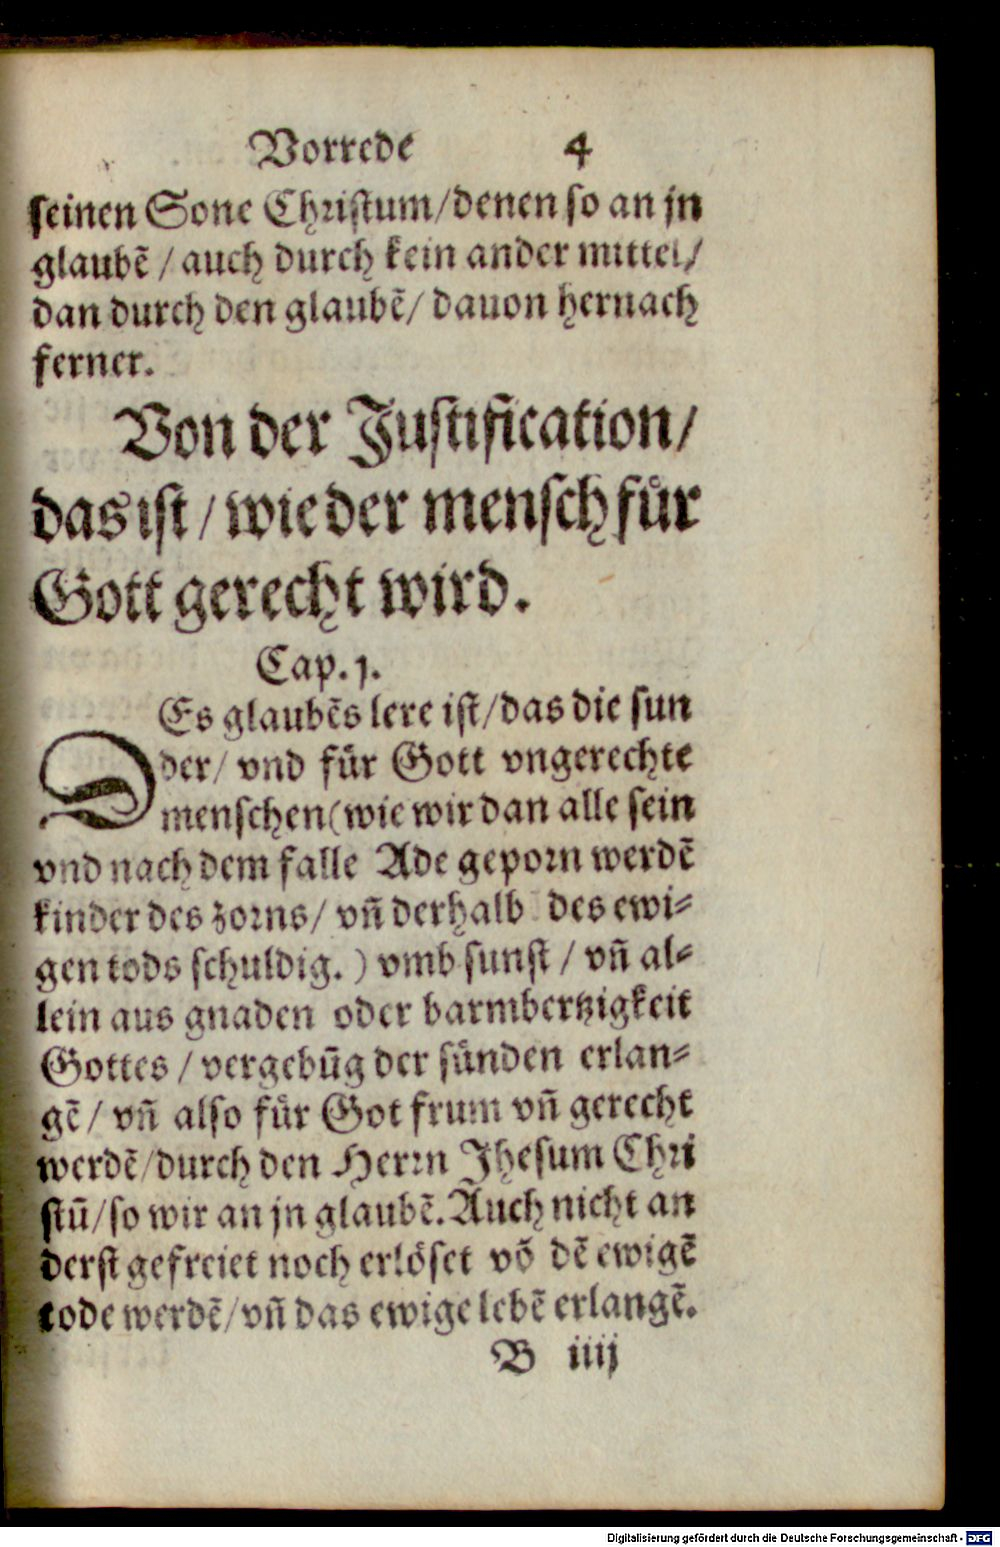 Vorrede 4
seinen Sone Christum/denen so an jn
glaubẽ / auch durch kein ander mittel/
dan durch den glaubẽ/ dauon hernach
ferner.
Von der Justification/
das ist / wie der mensch fůr
Gott gerecht wird.
Cap. j.
DEs glaubẽs lere ist/das die sun
der/ vnd fůr Gott vngerechte
menschen(wie wir dan alle sein
vnd nach dem falle Ade geporn werdẽ
kinder des zorns/ vñ derhalb des ewi-
gen tods schuldig. ) vmb sunst / vñ al-
lein aus gnaden oder barmhertzigkeit
Gottes / vergebũg der sůnden erlan-
gẽ / vñ also fůr Got frum vñ gerecht
werdẽ/durch den Herrn Jhesum Chri
stũ/so wir an jn glaubẽ. Auch nicht an
derst gefreiet noch erlöset võ dẽ ewigẽ
tode werdẽ/vñ das ewige lebẽ erlangẽ.
B iiij
Digitalisierung gefördert durch die Deutsche Forschungsgemeinschaft - DFG